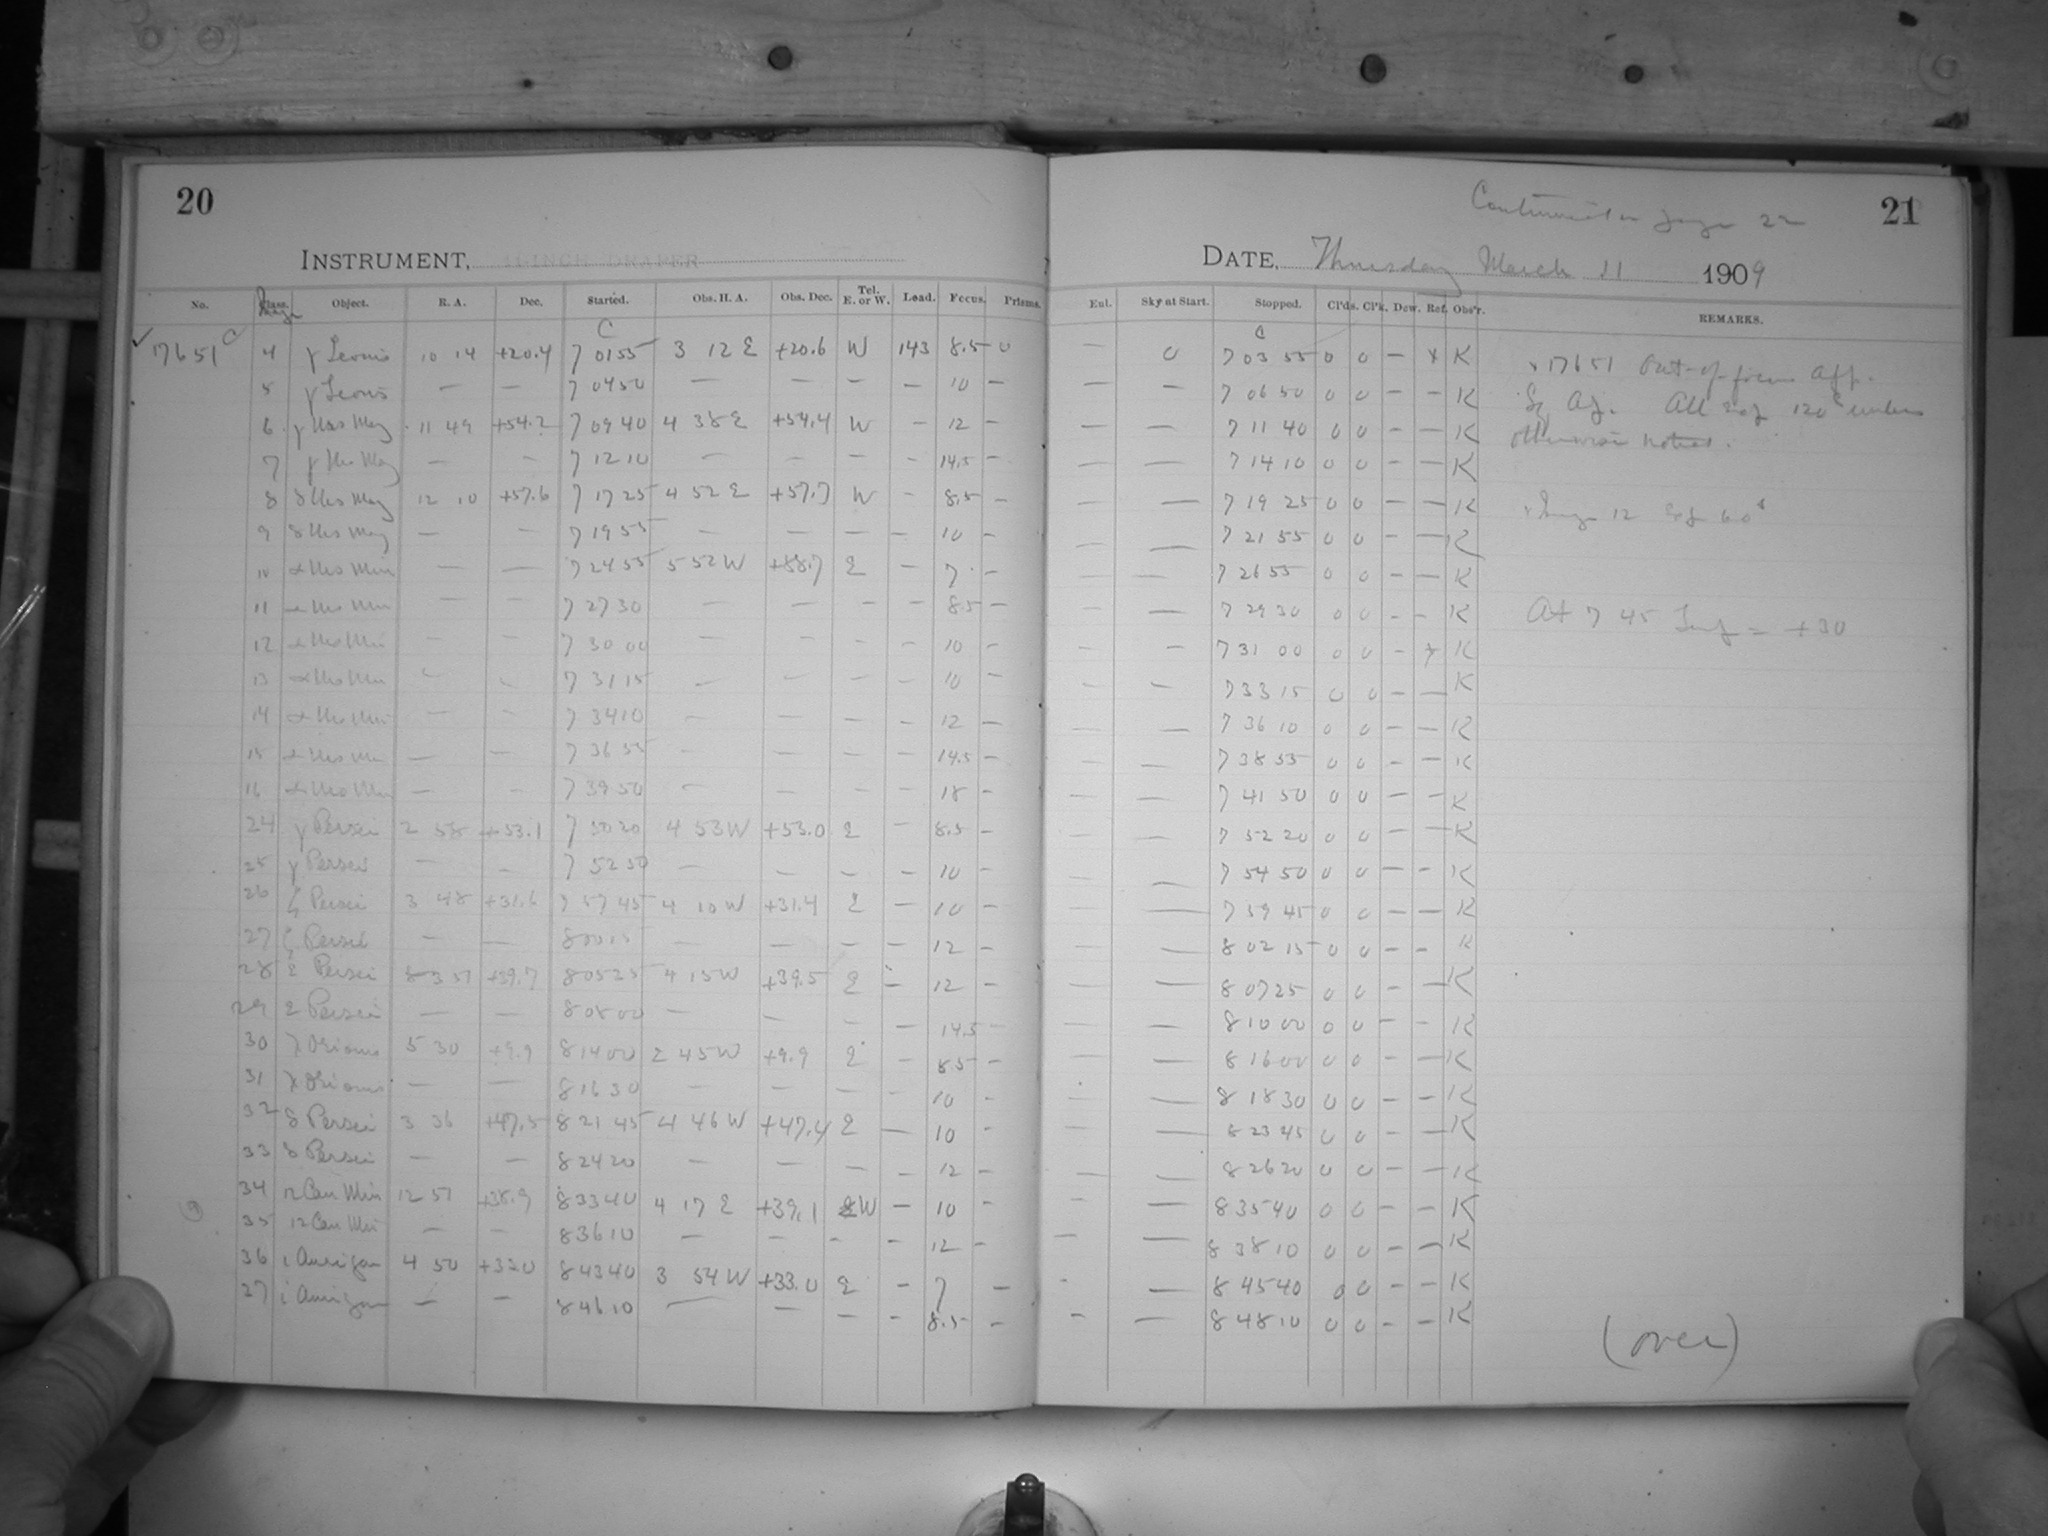 20
INSTRUMENT, 11-INCH DRAPER
No. Class. Image Object. R. A. Dec. Started. Obs. H. A. Obs. Dec. Tel. E. or W. Load. Focus. Prisms.
C
✓ 17651 C 4 γ Leonis 10 14 +20.4 7 01 55 3 12 E +20.6 W 143 8.5 0
5 γ Leonis — — 7 04 50 — — — — 10 —
6 γ Urs Maj 11 49 +54.2 7 09 40 4 38 E +54.4 W — 12 —
7 γ Urs Maj — — 7 12 10 — — — — 14.5 —
8 δ Urs Maj 12 10 +57.6 7 17 25 4 52 E +57.7 W — 8.5 —
9 δ Urs Maj — — 7 19 55 — — — — 10 —
10 α Urs Min — — 7 24 55 5 52 W +88.7 E — 7 —
11 α Urs Min — — 7 27 30 — — — — 8.5 —
12 α Urs Min — — 7 30 00 — — — — 10 —
13 α Urs Min — — 7 31 15 — — — — 10 —
14 α Urs Min — — 7 34 10 — — — — 12 —
15 α Urs Min — — 7 36 55 — — — — 14.5 —
16 α Urs Min — — 7 39 50 — — — — 18 —
24 γ Persei 2 58 +53.1 7 50 20 4 53 W +53.0 E — 8.5 —
25 γ Persei — — 7 52 50 — — — — 10 —
26 ζ Persei 3 48 +31.6 7 57 45 4 10 W +31.4 E — 10 —
27 ζ Persei — — 8 00 15 — — — — 12 —
28 ε Persei 3 51 +39.7 8 05 25 4 15 W +39.5 E — 12 —
29 ε Persei — — 8 08 00 — — — — 14.5 —
30 λ Orionis 5 30 +9.9 8 14 00 2 45 W +9.9 E — 8.5 —
31 λ Orionis — — 8 16 30 — — — — 10 —
32 δ Persei 3 36 +47.5 8 21 45 4 46 W +47.4 E — 10 —
33 δ Persei — — 8 24 20 — — — — 12 —
34 12 Can Min 12 51 +38.9 8 33 40 4 17 E +39.1 W — 10 —
35 12 Can Min — — 8 36 10 — — — — 12 —
36 ι Aurigae 4 50 +33.0 8 43 40 3 54 W +33.0 E — 7 —
27 ι Aurigae — — 8 46 10 — — — — 8.5 —
Continued on page 22
21
DATE, Thursday March 11 1909
Ent. Sky at Start. Stopped. Cl'ds. Cl'k. Dew. Ref. Obs'r. REMARKS.
C
— 0 7 03 55 0 0 — x K
— — 7 06 50 0 0 — — K
— — 7 11 40 0 0 — — K
— — 7 14 10 0 0 — — K
— — 7 19 25 0 0 — — K
— — 7 21 55 0 0 — — K
— — 7 26 55 0 0 — — K
— — 7 29 30 0 0 — — K
— — 7 31 00 0 0 — x K
— — 7 33 15 0 0 — — K
— — 7 36 10 0 0 — — K
— — 7 38 55 0 0 — — K
— — 7 41 50 0 0 — — K
— — 7 52 20 0 0 — — K
— — 7 54 50 0 0 — — K
— — 7 59 45 0 0 — — K
— — 8 02 15 0 0 — — K
— — 8 07 25 0 0 — — K
— — 8 10 00 0 0 — — K
— — 8 16 00 0 0 — — K
— — 8 18 30 0 0 — — K
— — 8 23 45 0 0 — — K
— — 8 26 20 0 0 — — K
— — 8 35 40 0 0 — — K
— — 8 38 10 0 0 — — K
— — 8 45 40 0 0 — — K
— — 8 48 10 0 0 — — K
x 17651 Out-of-focus
All 120s unless
otherwise noted.
x Image 12 60s
At 7 45 = +30
(over)